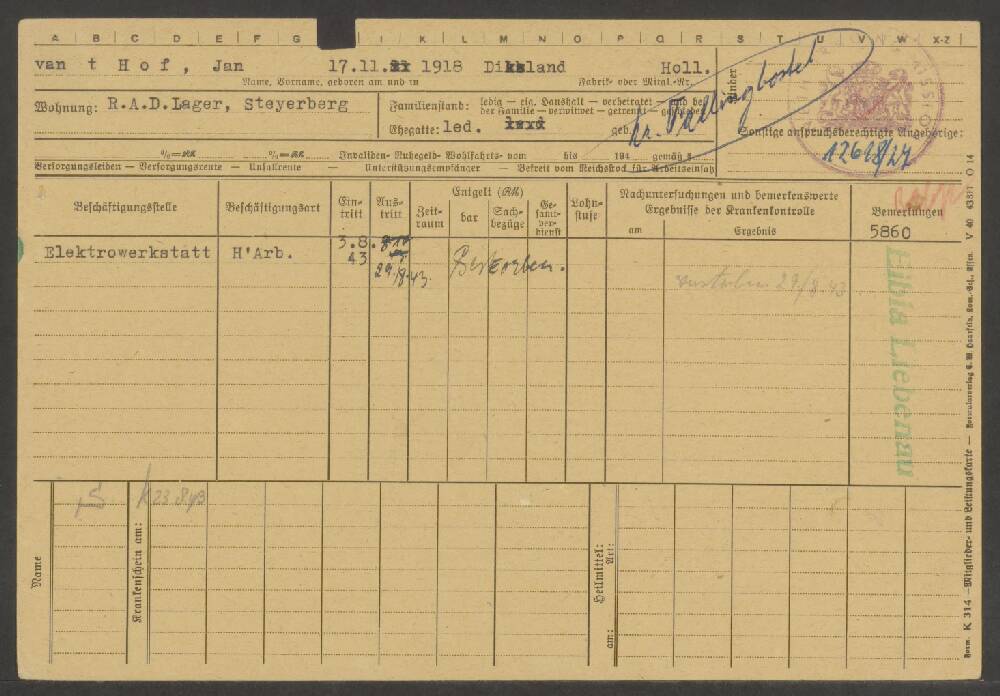 A B C D E F G I K L M N O P Q R S T U V W X-Z
van t Hof, Jan 17.11. 1918 Holl.
Name, Vorname, geboren am und in Fabrik- oder Mitgl.-Nr.
Kinder
Wohnung: R.A.D.Lager, Steyerberg
Familienstand: ledig — eig. Haushalt — verheiratet — und bei
der Familie — verwitwet — getrennt — geschieden
Ehegatte: led. geb.
Kr. Fallingbostel
Sonstige anspruchsberechtigte Angehörige:
Invaliden- Ruhegeld- Wohlfahrts- vom bis 194 gemäß §
Versorgungsleiden — Versorgungsrente — Unfallrente — Unterstützungsempfänger — Befreit vom Reichsstock für Arbeitseinsatz
Beschäftigungsstelle
Beschäftigungsart
Ein-
tritt
Aus-
tritt
Zeit-
raum
Entgelt (RM)
bar
Sach-
bezüge
Ge-
samt-
ver-
dienst
Lohn-
stufe
Nachuntersuchungen und bemerkenswerte
Ergebnisse der Krankenkontrolle
am Ergebnis
Bemerkungen
5860
Elektrowerkstatt H'Arb. 3.8.
43
29/8.43.
Gestorben.
verstorben 29/8.43
Eibia Liebenau
Name
Krankenschein am:
23.8.43
Heilmittel:
Art:
am:
Form. K 314 — Mitglieder- und Leistungskarte —